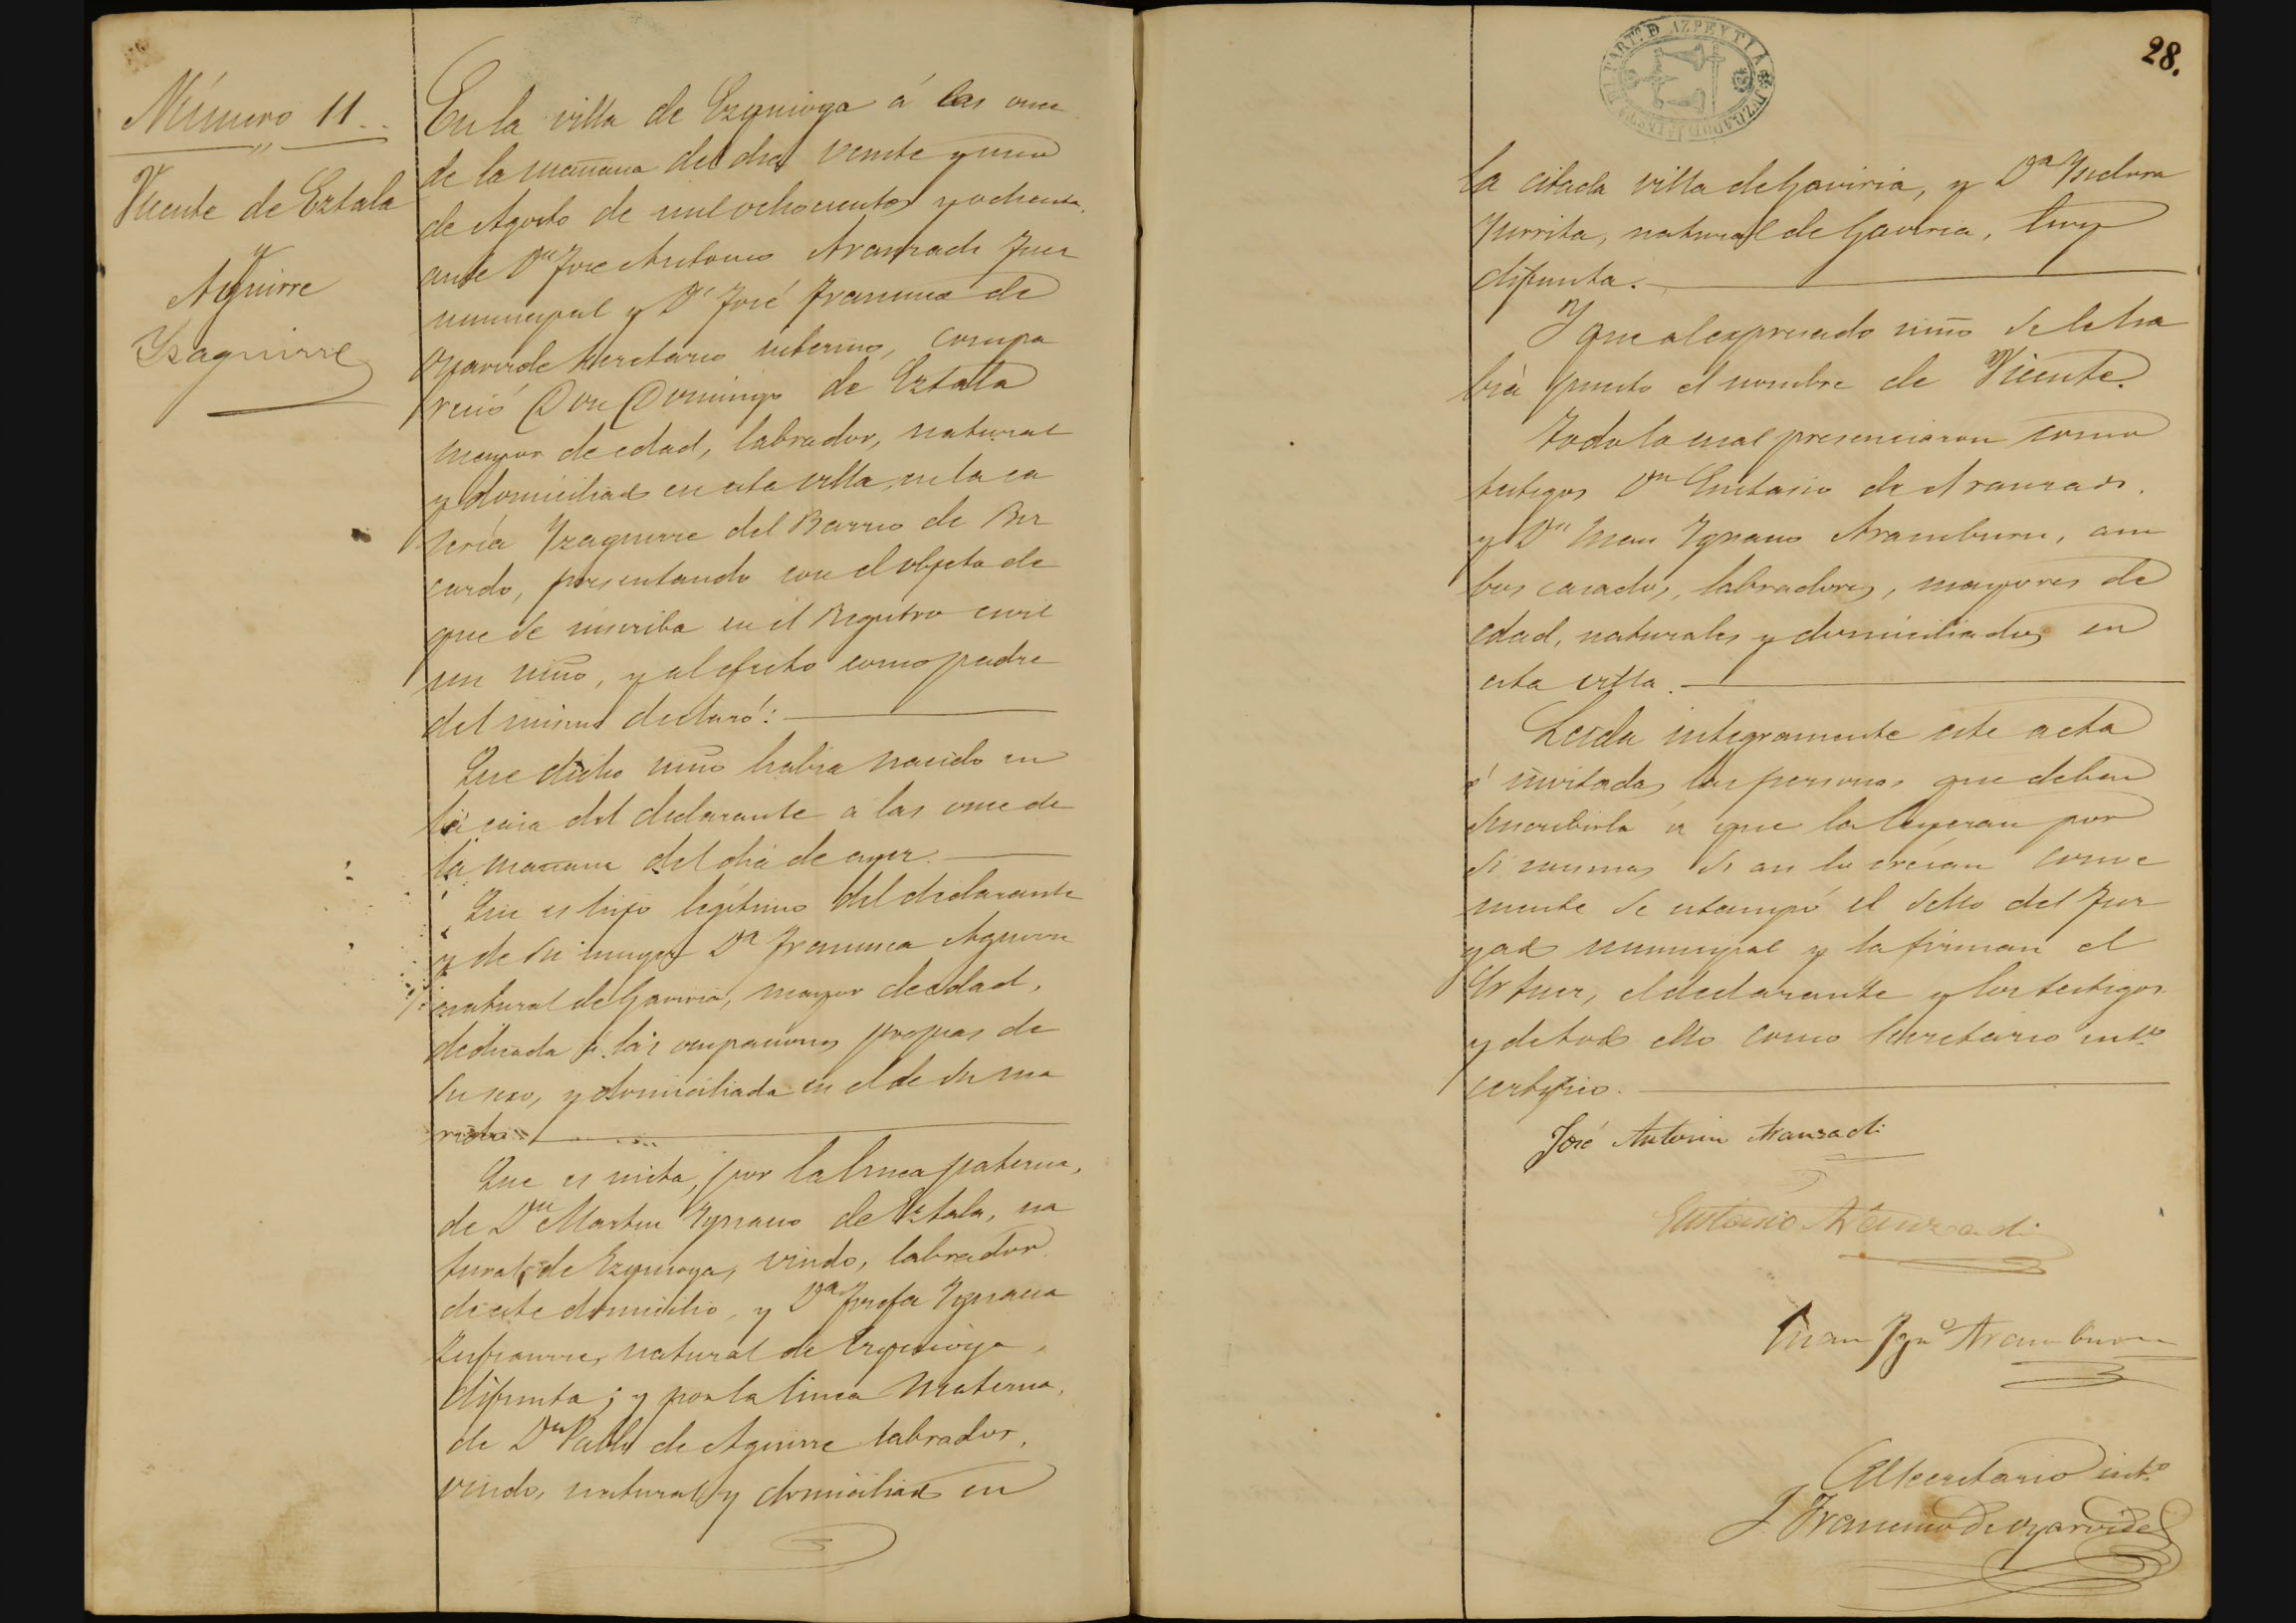 Número 11
Vicente de Eztala
y
Aguirre
Ysaguirre
En la villa de Ezquioga á las once
de la mañana del dia veinte y uno
de Agosto de mil ochocientos y ochenta,
ante Dn José Antonio Aranzadi Juez
municipal y Dn José Francisco de
Oyarvide Secretario interino, compa
reció Don Domingo de Eztala
mayor de edad, labrador, natural
y domiciliado en esta villa, en la ca
sería Yzaguirre del Barrio de
cardo, presentando con el objeto de
que se inscriba en el Registro civil
un niño, y al efecto como padre
del mismo declaró:
Que dicho niño habia nacido en
la casa del declarante a las once de
la mañana del dia de ayer.
Que es hijo legítimo del declarante
y de su muger Da Francisca Aguirre
natural de Gaviria, mayor de edad,
dedicada á las ocupaciones propias de
su sexo, y domiciliada en el de su ma
rido.
Que es nieto, por la linea paterna,
de Dn Martin Ygnacio de Eztala, na
tural de Ezquioga, viudo, labrador
de este domicilio, y Da Josefa Ygnacia
natural de Ezquioga,
difunta; y por la linea materna,
de Dn Pablo de Aguirre labrador,
viudo, natural y domiciliado en
28.
PART. D AZPEYTIA
la citada villa de Gaviria, y Da Ysidora
Yurrita, natural de Gaviria, hoy
difunta.
Y que al expresado niño se le ha
bia puesto el nombre de Vicente.
Todo lo cual presenciaron como
testigos Dn Eustasio de Aranzadi
y Dn Juan Ygnacio Aramburu, am
bos casados, labradores, mayores de
edad, naturales y domiciliados en
esta villa.
Leida integramente este acta
é invitadas las personas que deben
suscribirla á que la leyeran por
si mismas si asi lo creían conve
niente se estampó el sello del Juz
gado municipal y la firman el
Sr Juez, el declarante y los testigos
y de todo ello como Secretario intº
certifico.
José Antonio Aranzadi
Eustasio Aranzadi
Juan Ygnº Aramburu
El Secretario intº
J. Francisco de Oyarvide